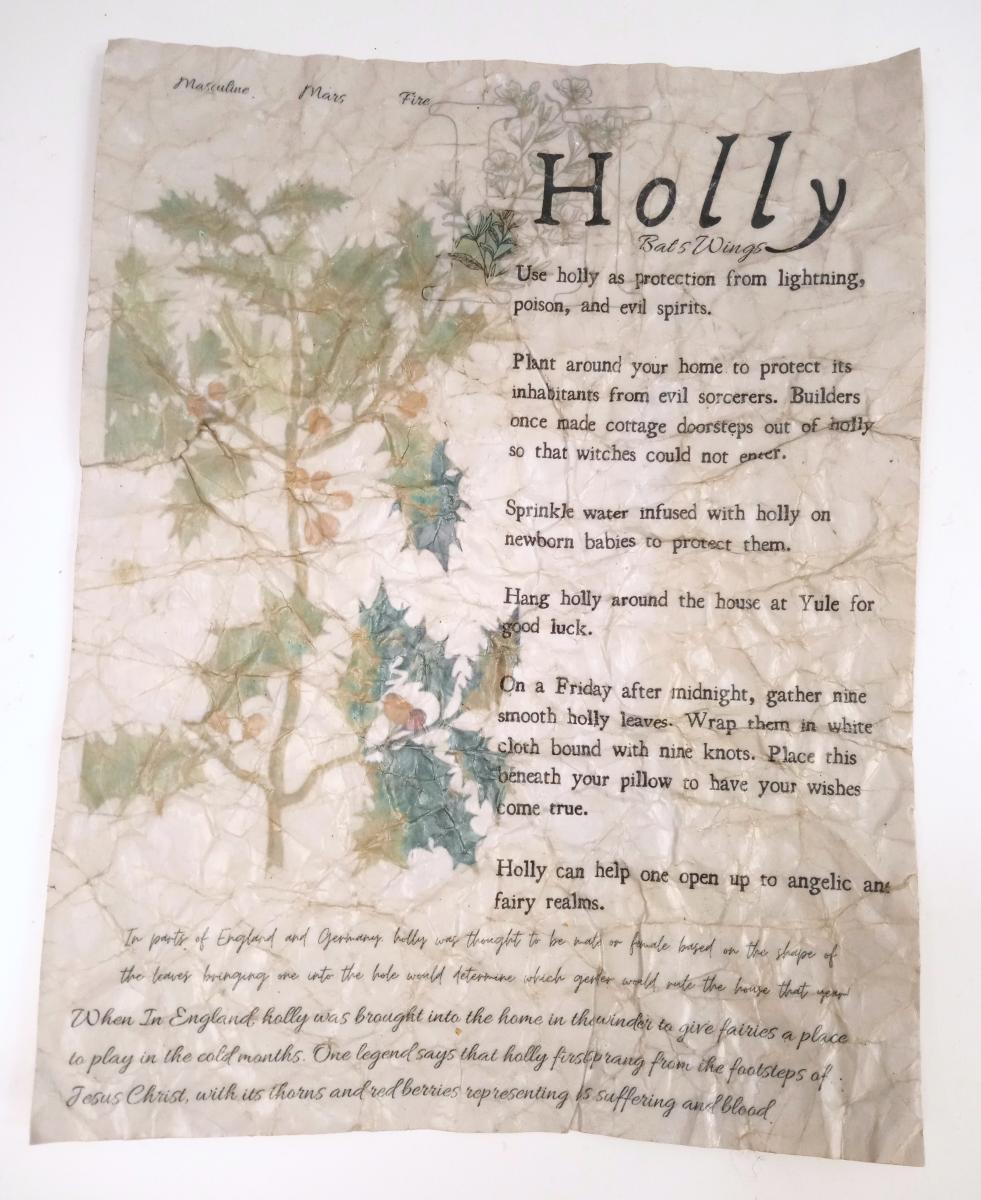 Masculine Mars Fire
H
Holly
Bat's Wings
Use holly as protection from lightning,
poison, and evil spirits.
Plant around your home to protect its
inhabitants from evil sorcerers. Builders
once made cottage doorsteps out of holly
so that witches could not enter.
Sprinkle water infused with holly on
newborn babies to protect them.
Hang holly around the house at Yule for
good luck.
On a Friday after midnight, gather nine
smooth holly leaves. Wrap them in white
cloth bound with nine knots. Place this
beneath your pillow to have your wishes
come true.
Holly can help one open up to angelic and
fairy realms.
In parts of England and Germany holly was thought to be male or female based on the shape of
the leaves bringing one into the hole would determine which gender would rule the house that year
When In England, holly was brought into the home in the winder to give fairies a place
to play in the cold months. One legend says that holly first sprang from the footsteps of
Jesus Christ, with its thorns and red berries representing is suffering and blood.